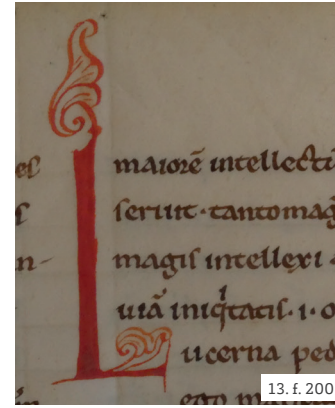 maiorē intellecti
serunt · tanto mag
magis intellexi
uiā iniq̇tatis · i · o
Lucerna ped
ego
13. f. 200